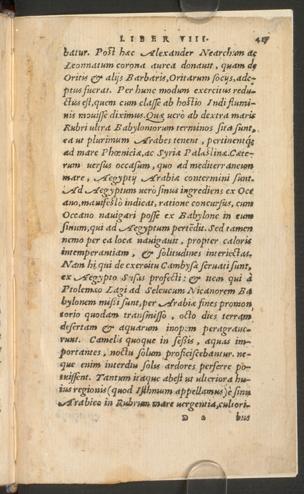 LIBER VIII. 417
batur. Post hæc Alexander Nearchum ac
Leonnatum corona aurea donauit, quum de
Oritis & alijs Barbaris, Oritarum socijs, ade-
ptus fuerat. Per hunc modum exercitus redu-
ctus est, quem cum classe ab hostio Indi flumi-
nis mouisse diximus. Quæ uerò ab dextra maris
Rubri ultra Babyloniorum terminos sita sunt,
ea ut plurimum Arabes tenent, pertinentque
ad mare Phœnicia, ac Syria Palæstina. Cæte-
rum uersus occasum, quo ad mediterraneum
mare, Aegyptij Arabiæ contermini sunt.
Ad Aegyptum uerò sinus ingrediens ex Oce
ano, manifestò indicat, ratione concursus, cum
Oceano nauigari posse ex Babylone in eum
sinum, qui ad Aegyptum pertĕdit. Sed tamen
nemo per ea loca nauigauit, propter caloris
intemperantiam, & solitudines interiectas.
Nam hi, qui de exercitu Cambysæ seruati sunt,
ex Aegypto Susas profecti: & item qui à
Ptolemæo Lagi ad Seleucum Nicanorem Ba
bylonem missi sunt, per Arabiæ fines promon
torio quodam transmisso, octo dies terram
desertam & aquarum inopem peragraue-
runt. Camelis quoque in sessis, aquas im-
portantes, noctu solum proficiscebantur. ne-
que enim interdiu solis ardores perferre po-
tuissent. Tantum itaque abest ut ulteriora hu-
ius regionis (quod Isthmum appellamus) è sinu
Arabico in Rubrum mare uergentia, cultori-
D d bus